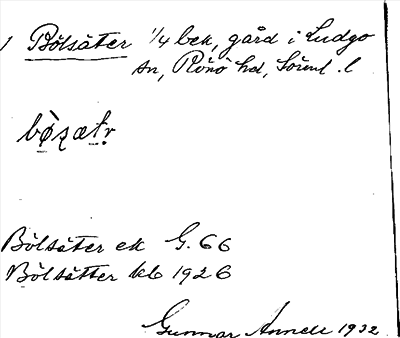 1 Bölsäter ¼ bek, gård i Ludgo
sn, Rönö hd, Söml. l
bø̀ʒætr
Bölsäter ek G. 66
Bölsätter kb 1926
Gunnar Annell 1932